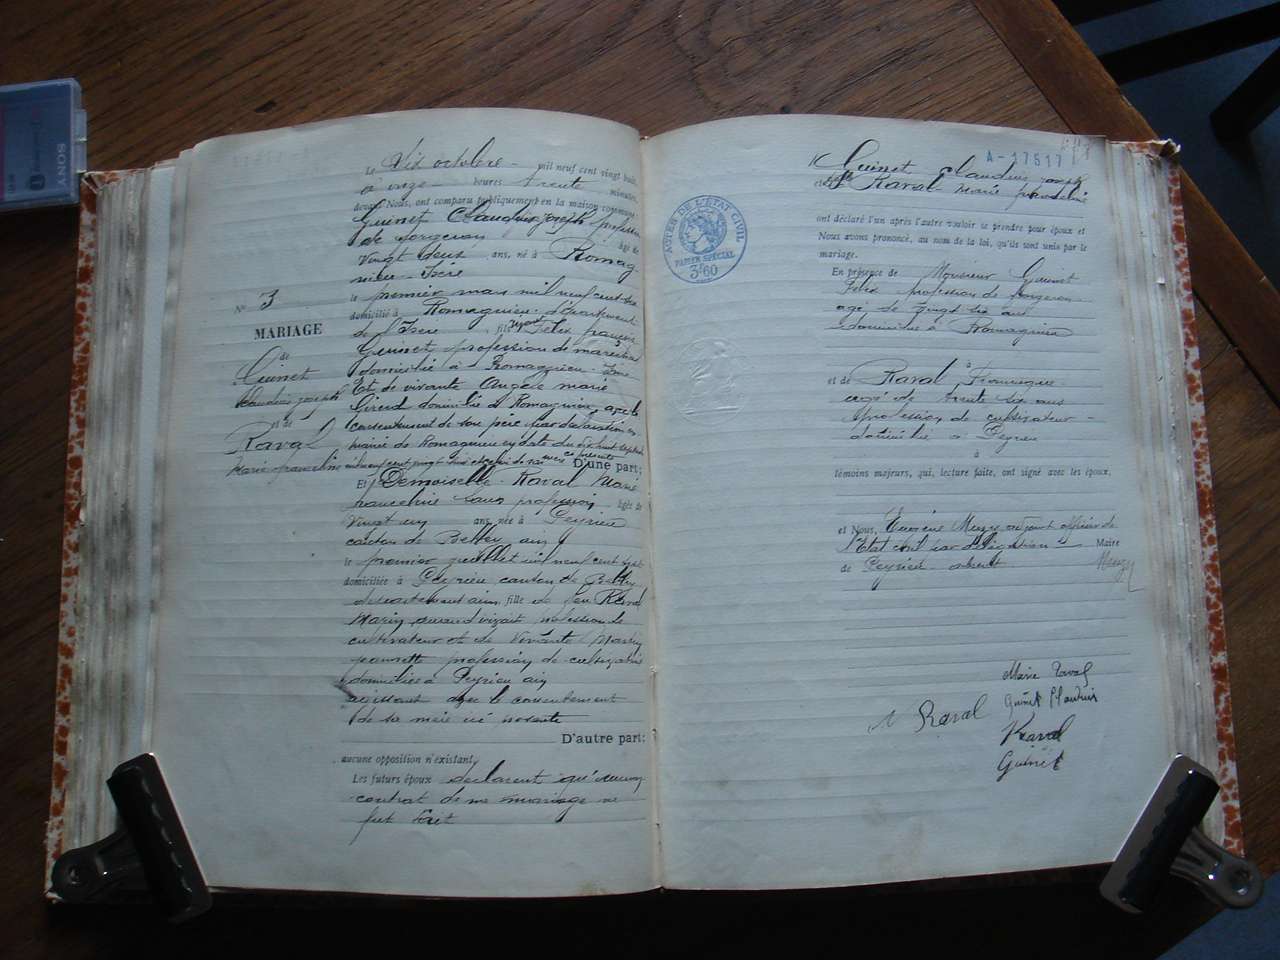 Le Six octobre mil neuf cent vingt huit,
à onze heures trente minutes,
devant Nous, ont comparu publiquement en la maison commune:
Guinet Claudius joseph profession
de forgeron âgé de
vingt deux ans, né à Romag
nieu Isère
le premier mars mil neuf cent six
domicilié à Romagnieu département
de Isère, fils de Felix françois
Guinet profession de maréchal
domicilié à Romagnieu Isère
Et de vivante Angèle marie
Giroud domiciliée à Romagnieu, avec le
consentement de son père par déclaration en
mairie de Romagnieu en date du dix huit septembre
mil neuf cent vingt huit et
D'une part;
Et Demoiselle Raval Marie
franceline sans profession âgée de
vingt un ans, née à Peyrieu
canton de Belley ain
le premier juillet mil neuf cent sept
domiciliée à Peyrieu canton de Belley
département ain, fille de feu Raval
Marin quand vivait profession de
cultivateur et de vivante Marin
jeannette profession de cultivatrice
domiciliée à Peyrieu ain
agissant avec le consentement
de sa mère ici présente
D'autre part;
aucune opposition n'existant,
Les futurs époux déclarent qu'aucun
contrat de mariage ne
fut fait
N° 3
MARIAGE
de
Guinet
Claudius joseph
et de
Raval
Marie francelin
A-17517
Guinet Claudius joseph
et Raval Marie francéline
ont déclaré l'un après l'autre vouloir se prendre pour époux et
Nous avons prononcé, au nom de la loi, qu'ils sont unis par le
mariage.
En présence de Monsieur Guinet
Felix profession de forgeron
agé de vingt six ans
domicilié à Romagnieu
à
et de Raval, Francisque
agé de trente six ans
profession de cultivateur
domicilié à Peyrieu
à
témoins majeurs, qui, lecture faite, ont signé avec les époux,
et Nous, Eugène Muzy adjoint officier de
l'Etat civil par délégation Maire
de Peyrieu absent. Muzy
Marie Raval
Guinet Claudius
Raval
Raval
Guinet
ACTES DE L'ÉTAT CIVIL
PAPIER SPÉCIAL
3f60
SONY